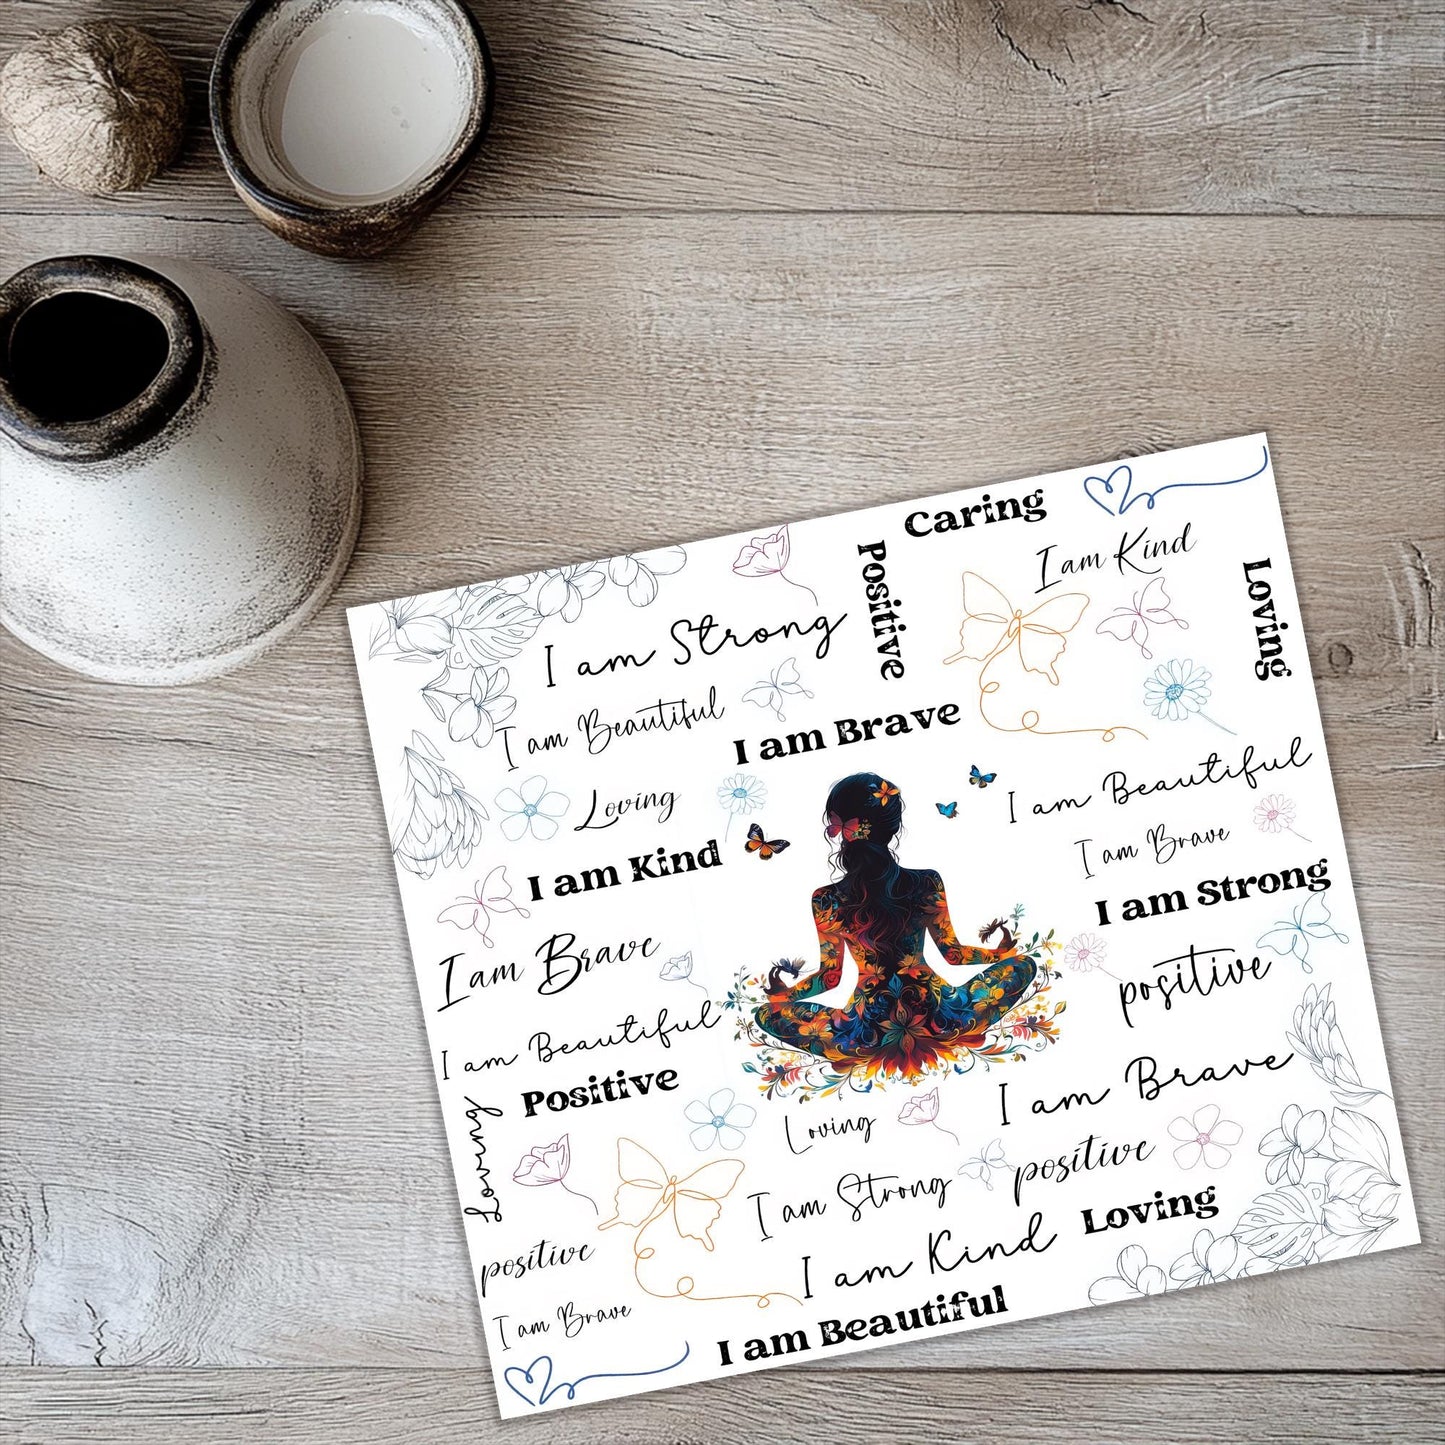 Caring
I am Kind
Positive
Loving
I am Strong
I am Beautiful
I am Brave
I am Beautiful
Loving
I am Brave
I am Kind
I am Strong
I am Brave
positive
I am Beautiful
Positive
I am Brave
Loving
Loving
positive
I am Strong
Loving
positive
I am Kind
I am Brave
I am Beautiful